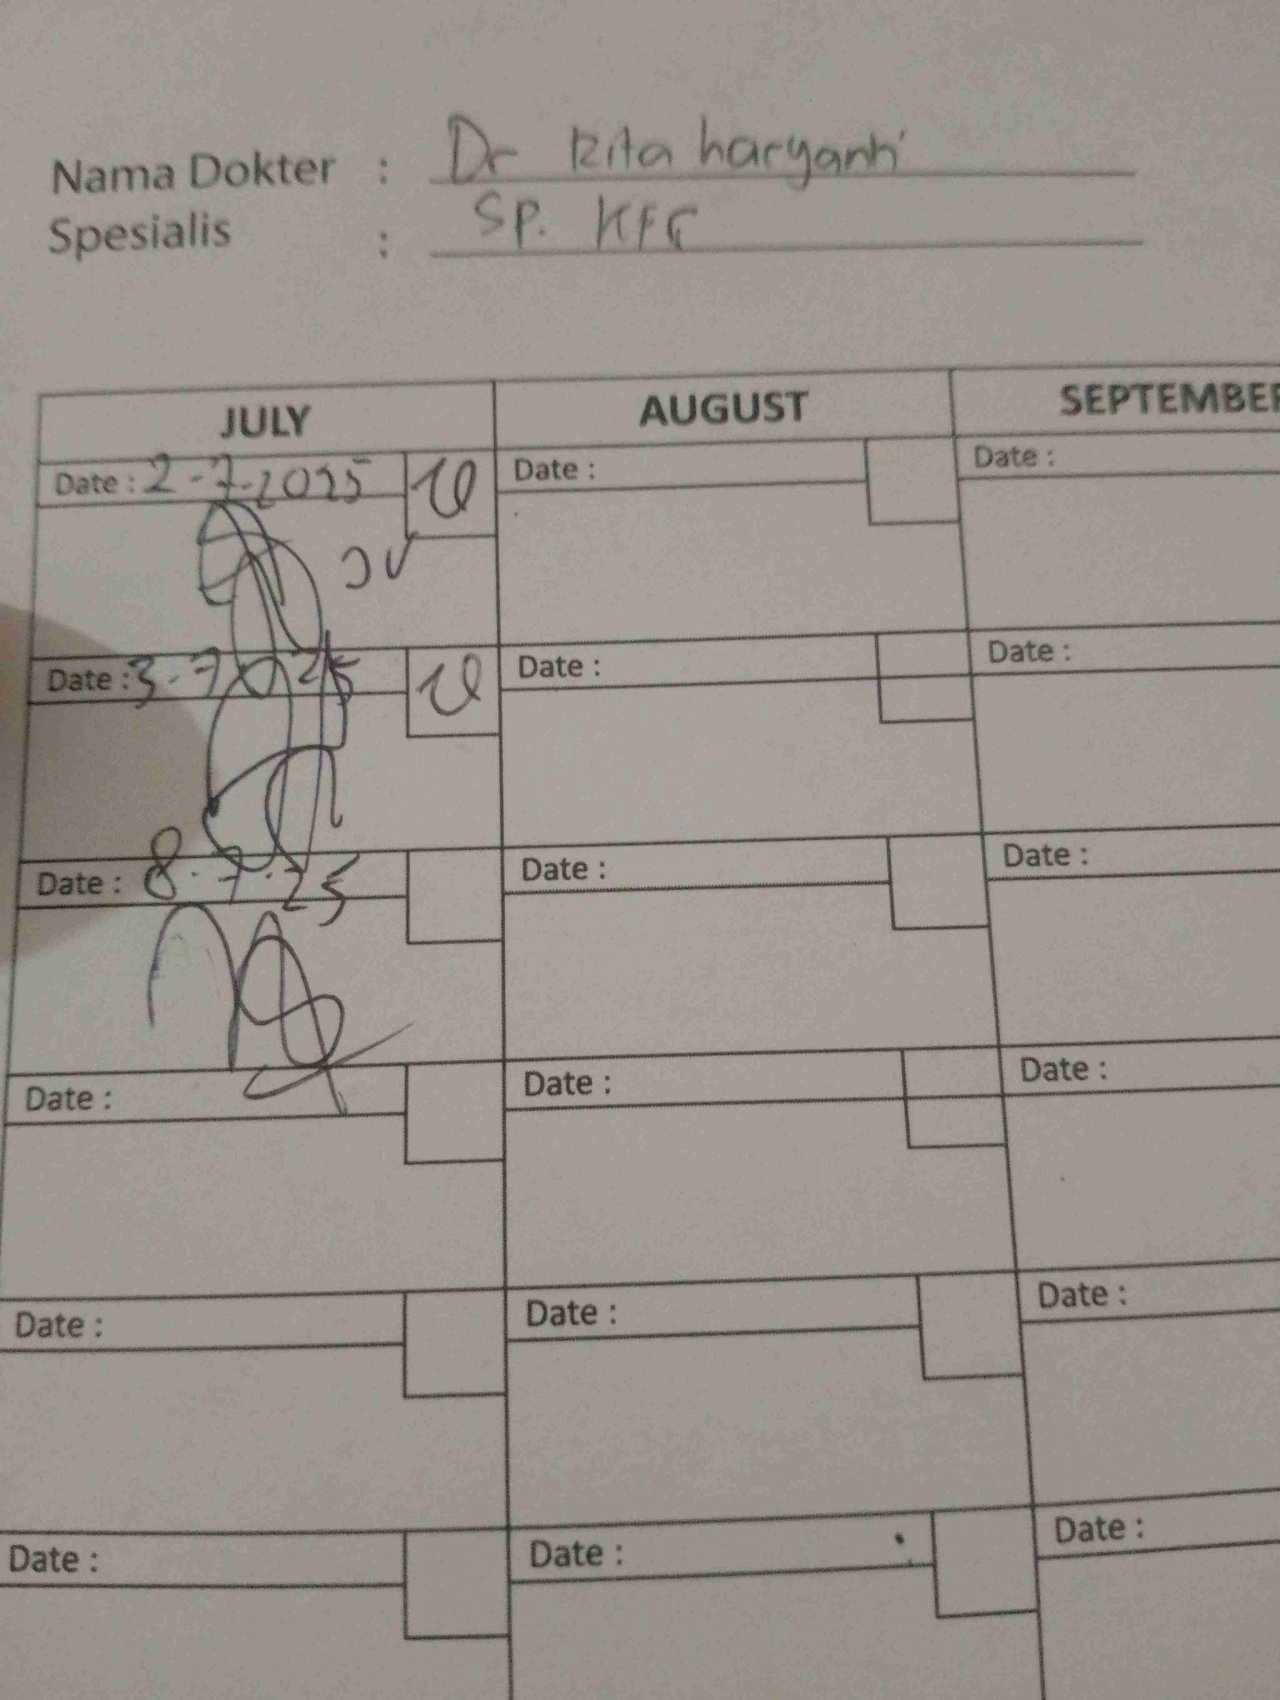 Nama Dokter : Dr Rita haryanti
Spesialis : Sp. KFR
JULY AUGUST SEPTEMBER
Date : 2-7-2025 Date : Date :
Date : 3-7-25 Date : Date :
Date : 8.7.25 Date : Date :
Date : Date : Date :
Date : Date : Date :
Date : Date : Date :